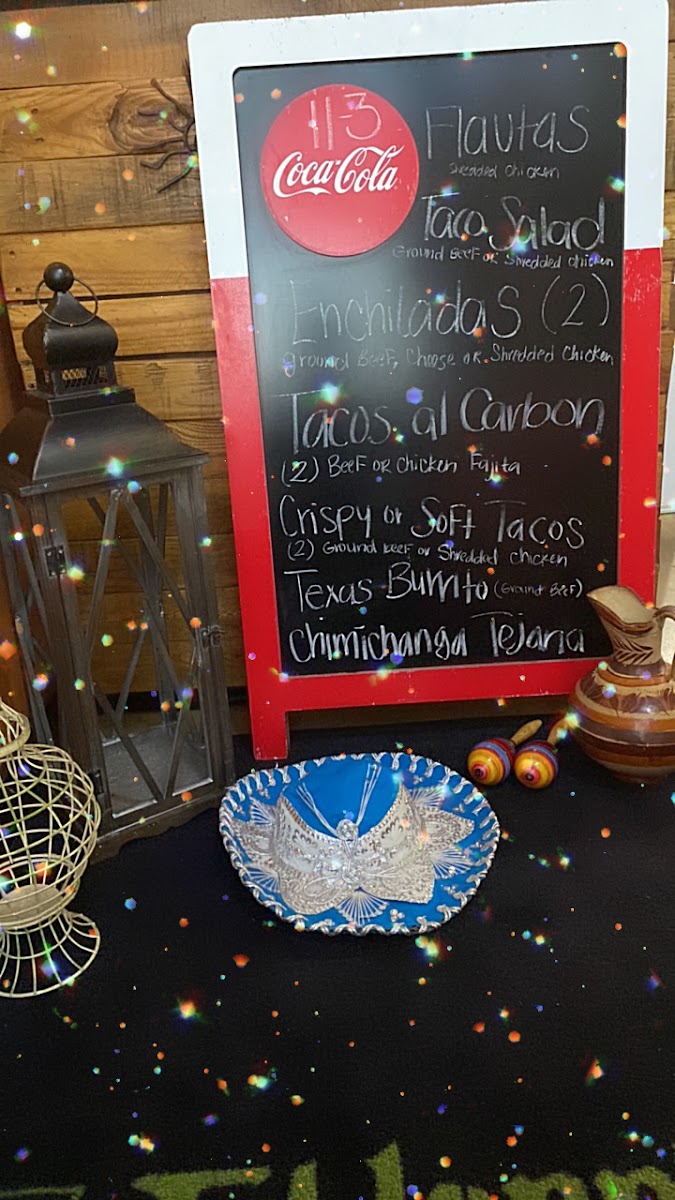 11-3
Coca-Cola
Flautas
Shredded Chicken
Taco Salad
Ground Beef or Shredded Chicken
Enchiladas (2)
Ground Beef, Cheese or Shredded Chicken
Tacos al Carbon
(2) Beef or Chicken Fajita
Crispy or Soft Tacos
(2) Ground beef or Shredded Chicken
Texas Burrito (Ground Beef)
Chimichanga Tejana